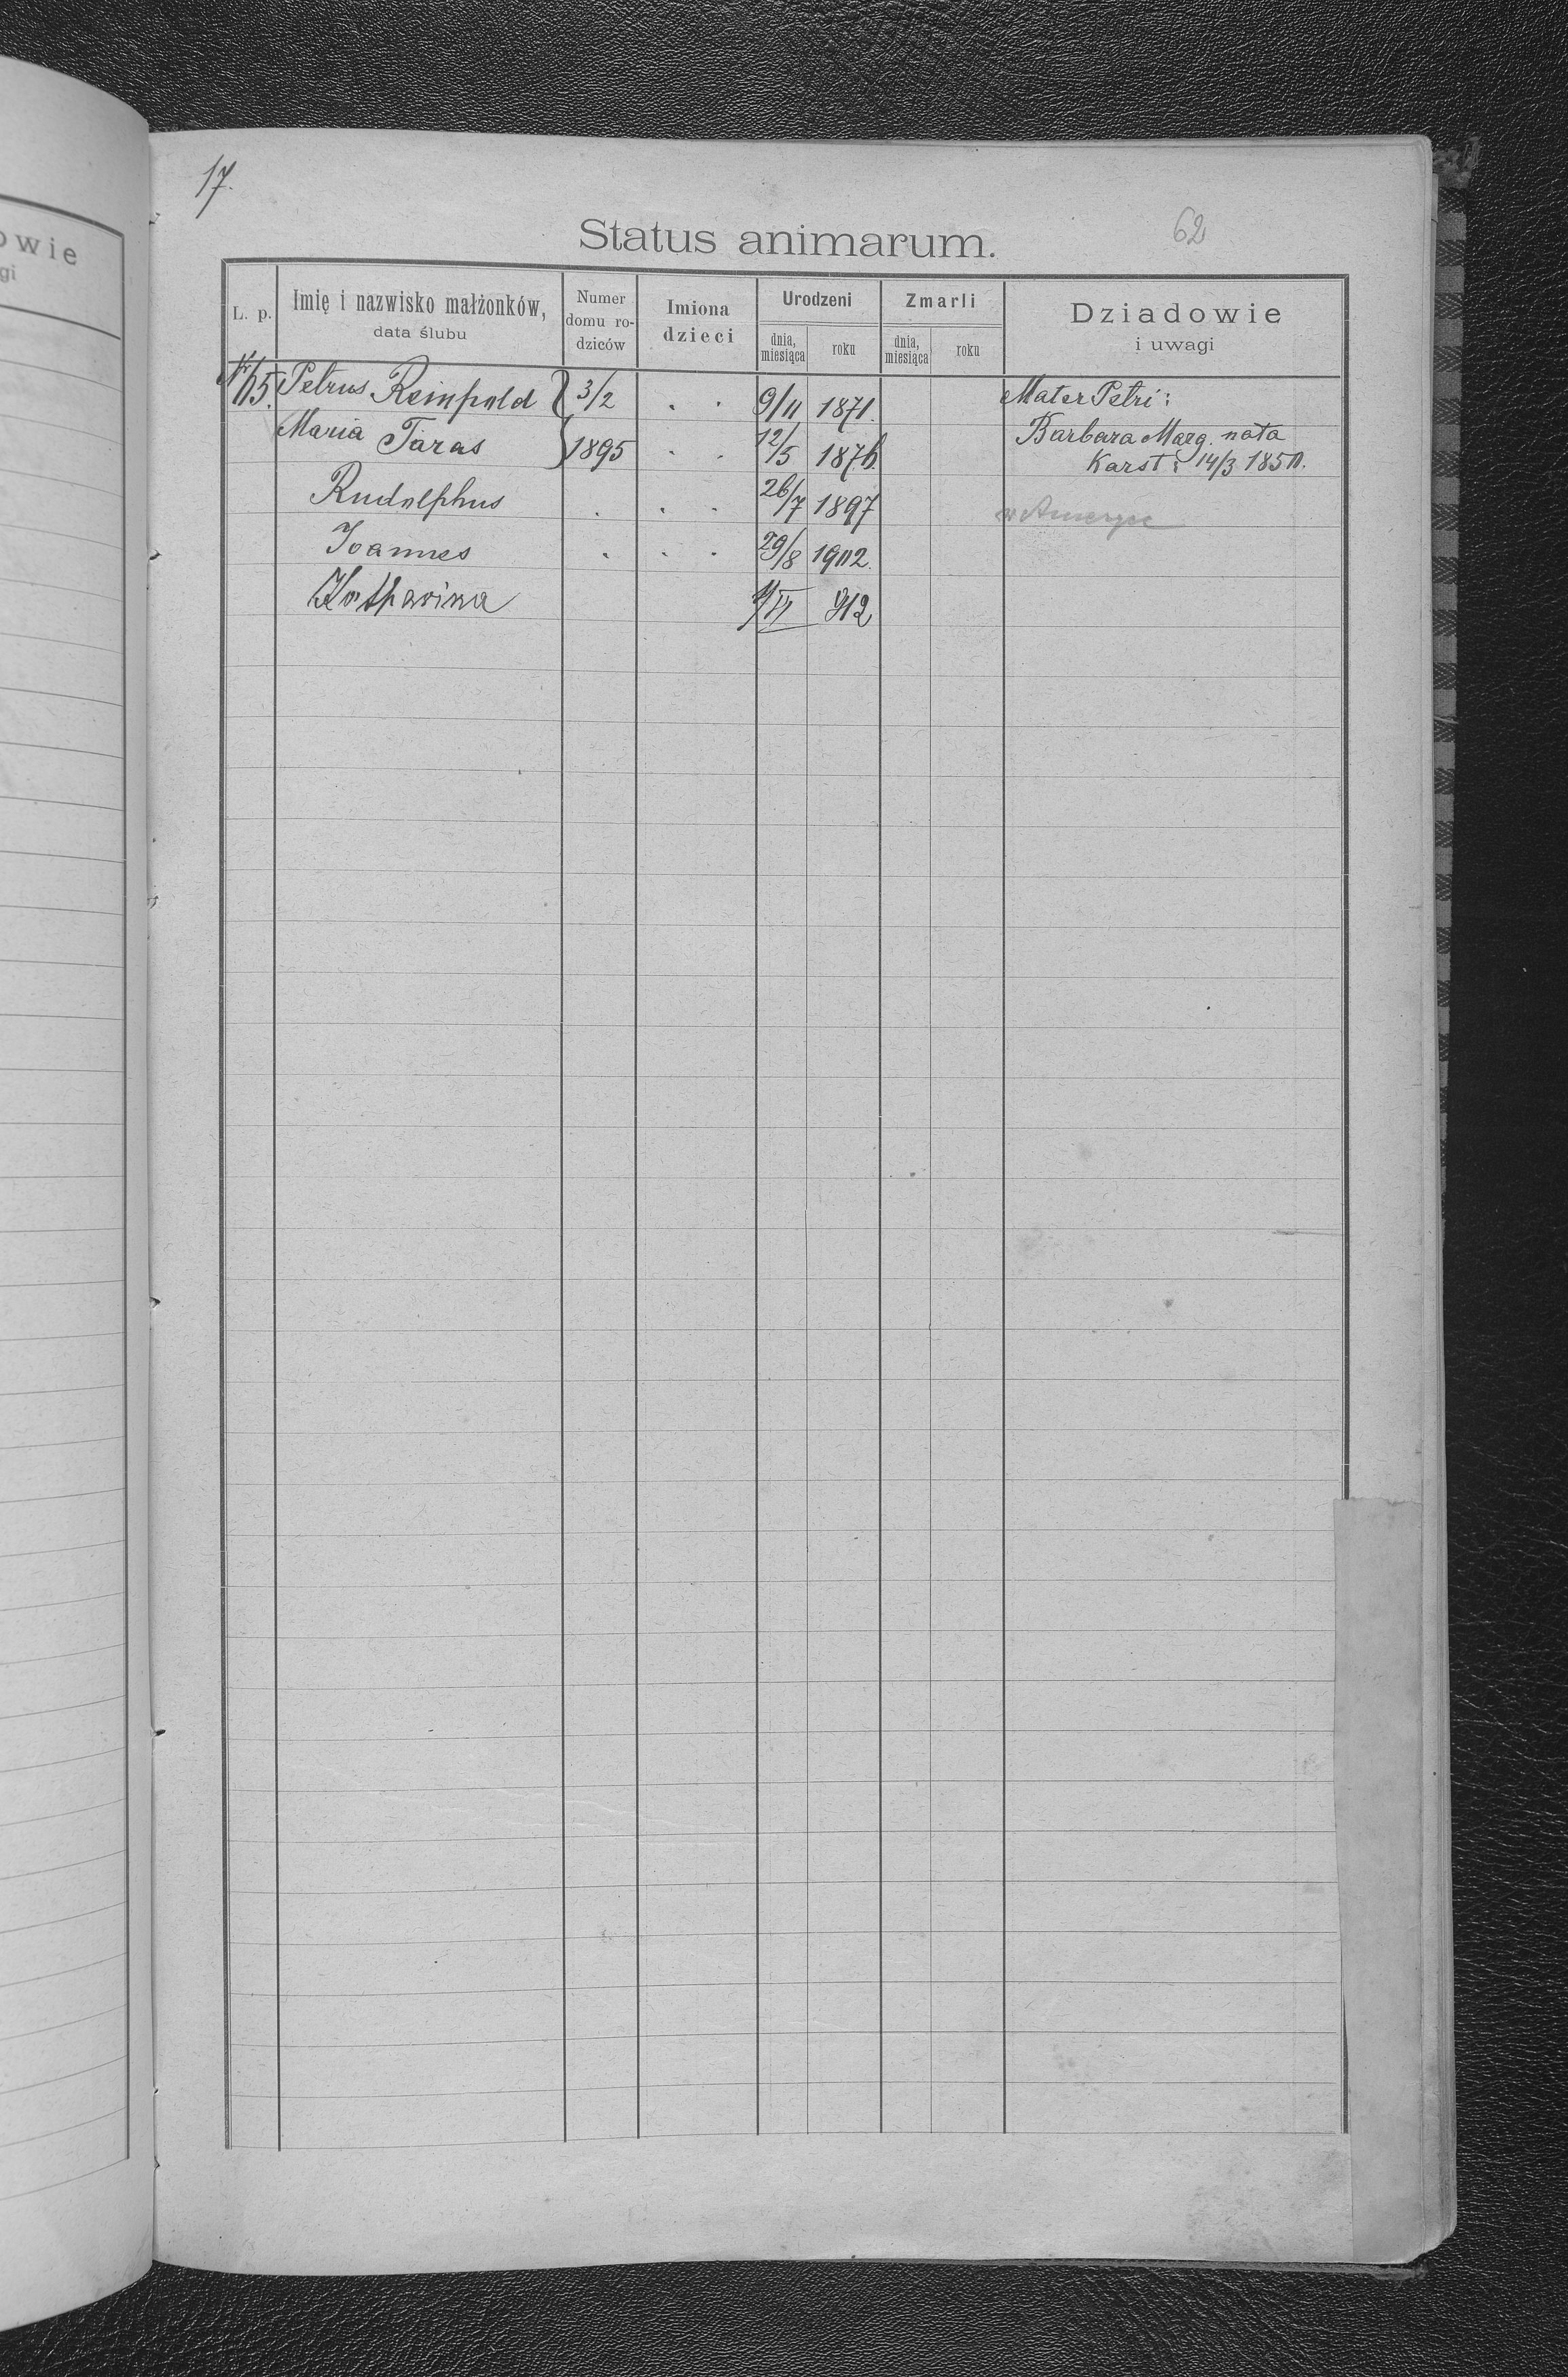 17.
62
Status animarum.
L. p.
Imię i nazwisko małżonków,
data ślubu
Numer
domu ro-
dziców
Imiona
dzieci
Urodzeni
dnia,
miesiąca
roku
Zmarli
dnia,
miesiąca
roku
Dziadowie
i uwagi
Petrus Reinpold } 3/2 . . 9/11 1871. Mater Petri:
Maria Taras } 1895 . . 12/5 1876 Barbara Marg. nata
Karst: 14/3 1850.
Rudolphus . . . 26/7 1897 w Ameryce
Joannes . . . 29/8 1902.
Katharina 912
owie
gi